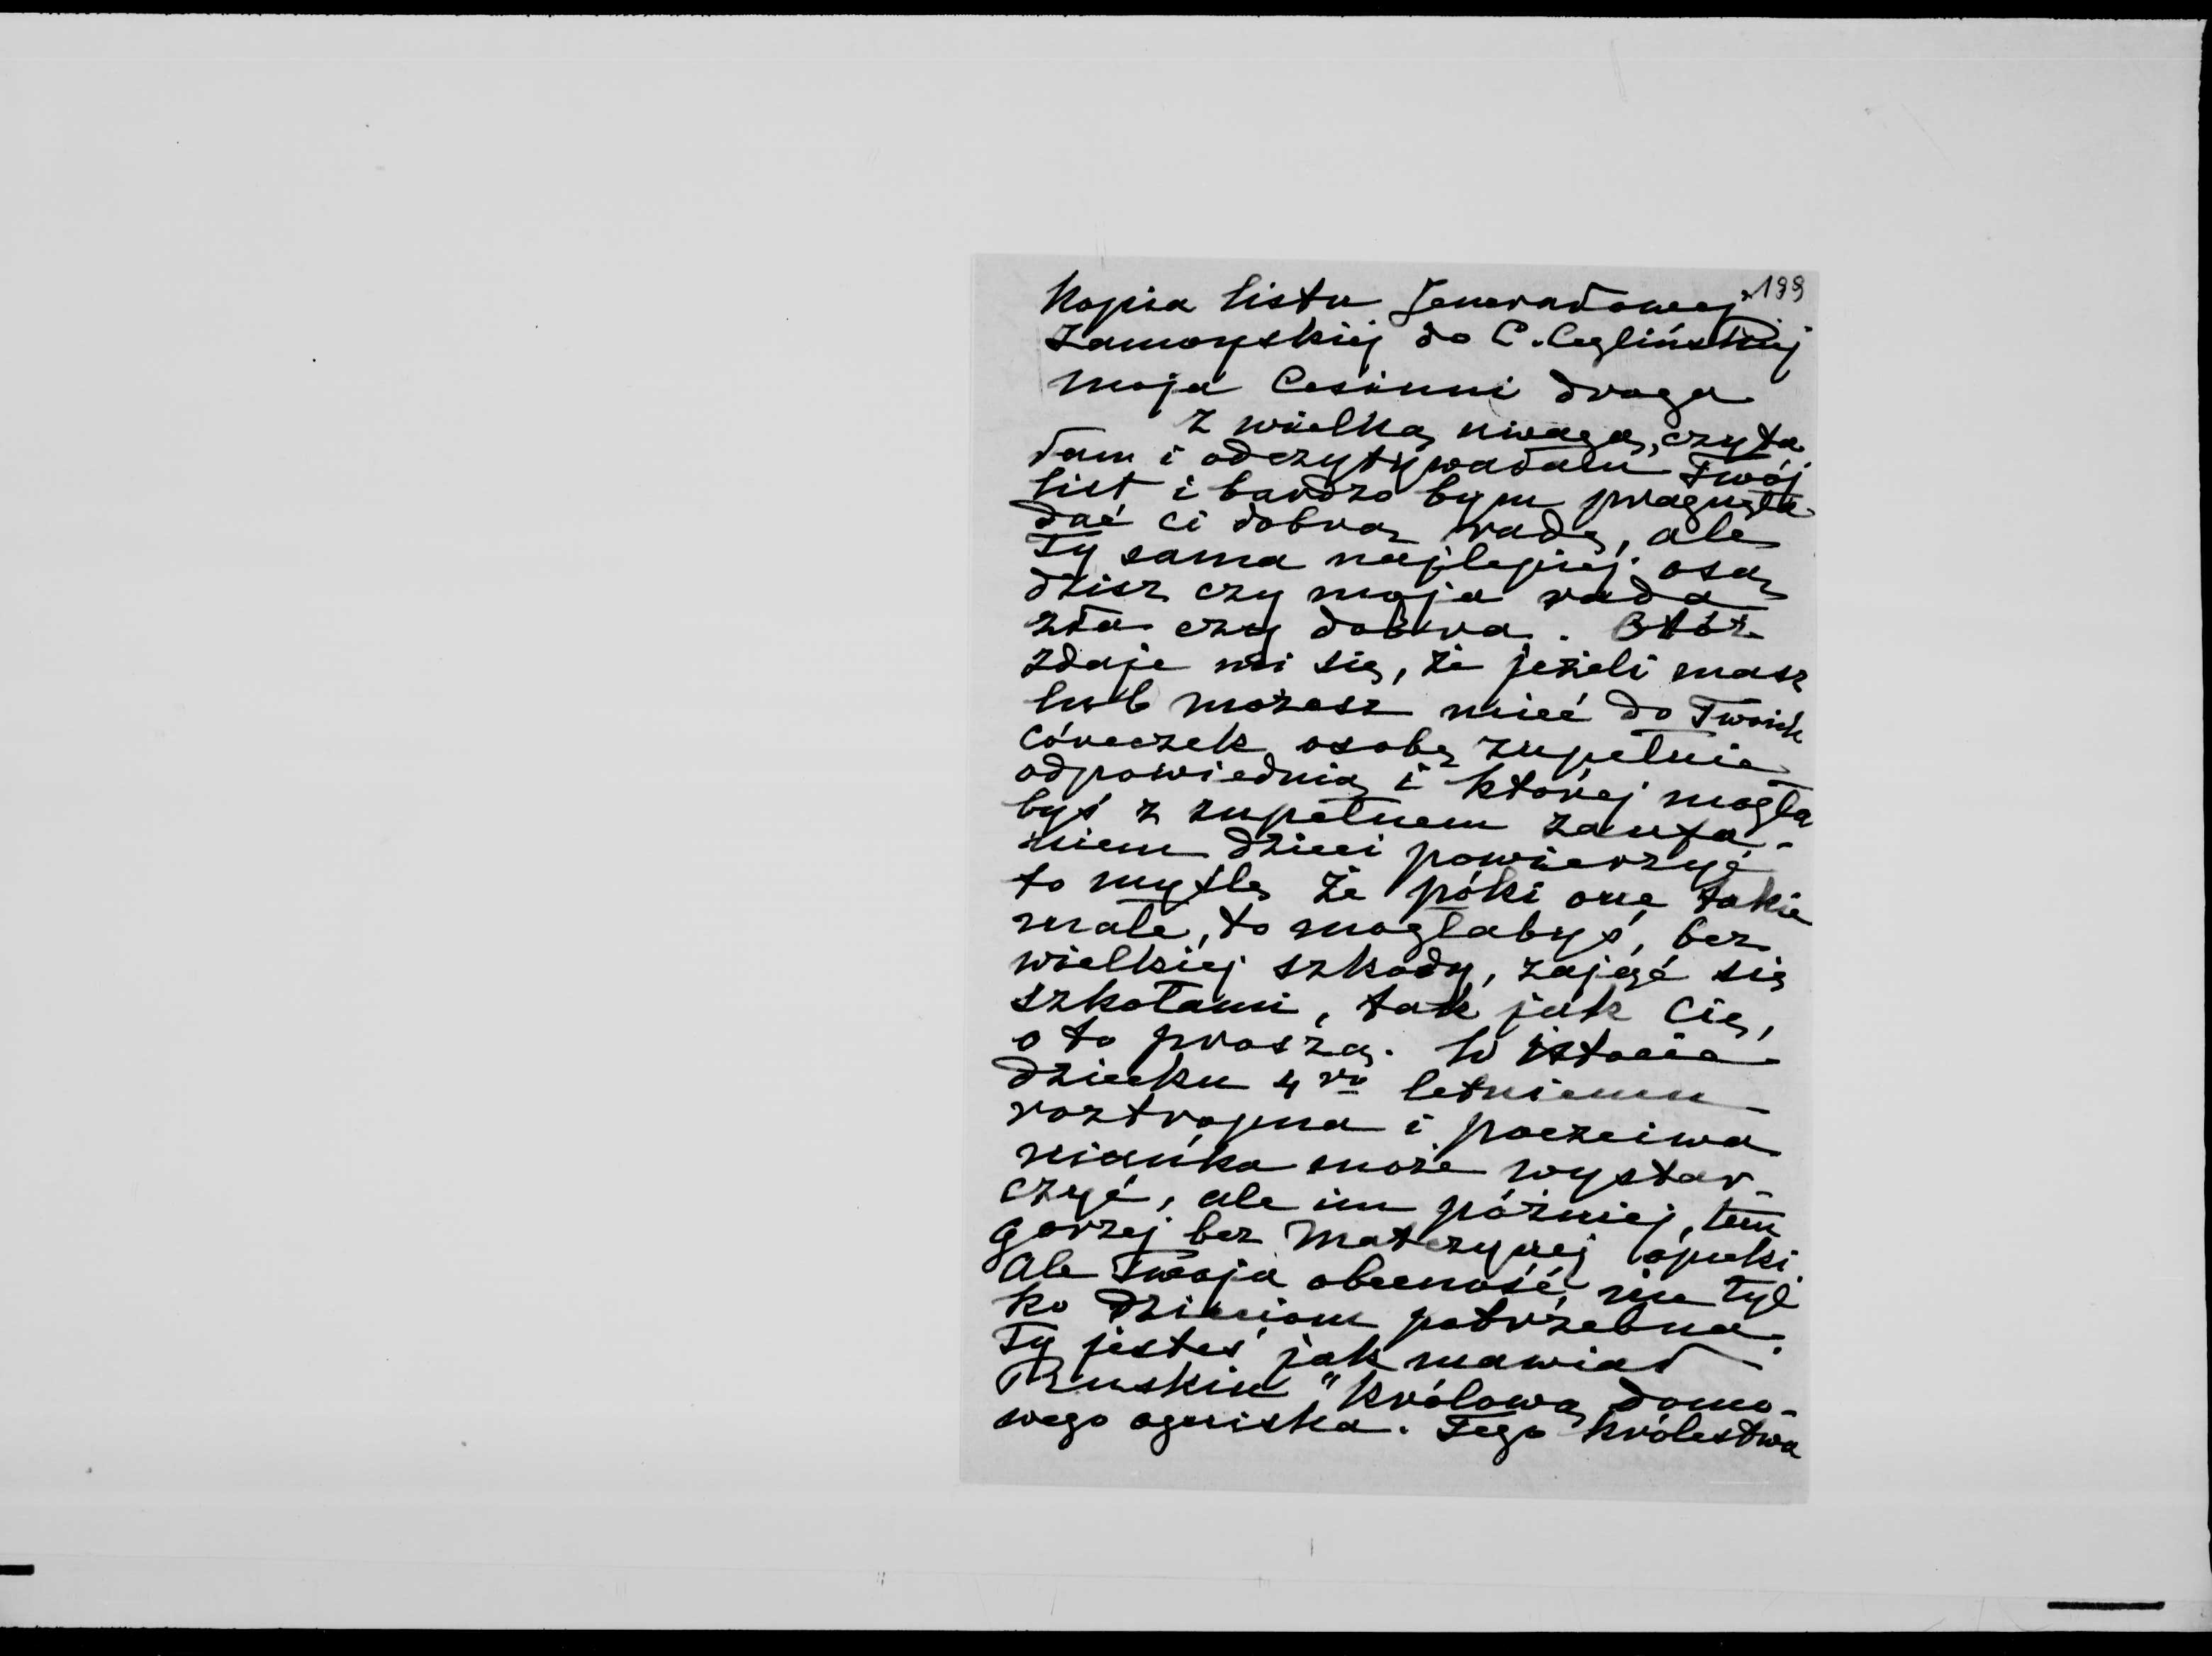 199
Kopia listu Jenerałowej
Zamoyskiej do C. Ceglińskiej
Moja Cesiuni droga
Z wielką uwagą, czyta
łam i odczytywałam Twój
list i bardzo bym pragnęła
dać ci dobrą radę, ale
Ty sama najlepiej osą
dzisz czy moja rada
zła czy dobra. Otóż
zdaje mi się, że jeżeli masz
lub możesz mieć do Twoich
córeczek osobę zupełnie
odpowiednią i której mogła
byś z zupełnem zaufa-
niem dzieci powierzyć
to myślę że póki one takie
małe, to mogłabyś, bez
wielkiej szkody, zająć się
szkołami, tak jak Cię,
o to proszą. W istocie
dziecku 4ro letniemu
roztropna i poczciwa
niańka może wystar-
czyć, ale im później, tem
gorzej bez Matczynej opieki
Ale Twoja obecność nie tyl
ko dzieciom potrzebna.
Ty jesteś jak mawiał
Ruskin "królową domo-
wego ogniska. Tego królestwa